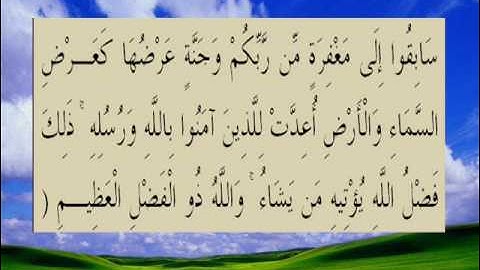 سَابِقُوا إِلَى مَغْفِرَةٍ مِّن رَّبِّكُمْ وَجَنَّةٍ عَرْضُهَا كَعَـــرْضِ
السَّمَاءِ وَالْأَرْضِ أُعِدَّتْ لِلَّذِينَ آمَنُوا بِاللَّهِ وَرُسُلِهِ ۚ ذَلِكَ
فَضْلُ اللَّهِ يُؤْتِيهِ مَن يشَاءُ ۚ وَاللَّهُ ذُو الْفَضْلِ الْعَظِيـــمِ (